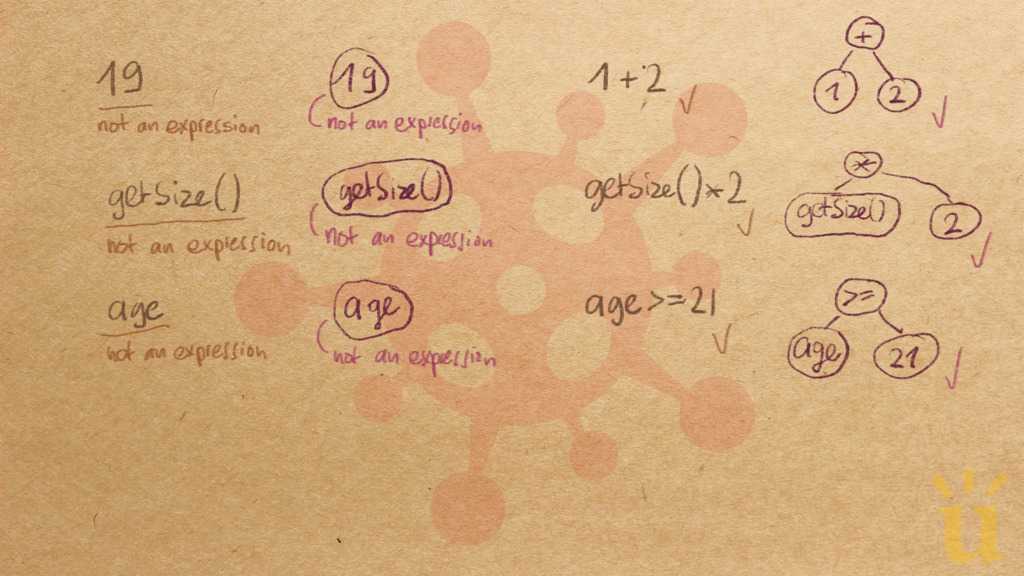 19
not an expression
19
not an expression
1+2
+
1
2
getSize()
not an expression
getSize()
not an expression
getSize()*2
*
getSize()
2
age
not an expression
age
not an expression
age>=21
>=
age
21
ü